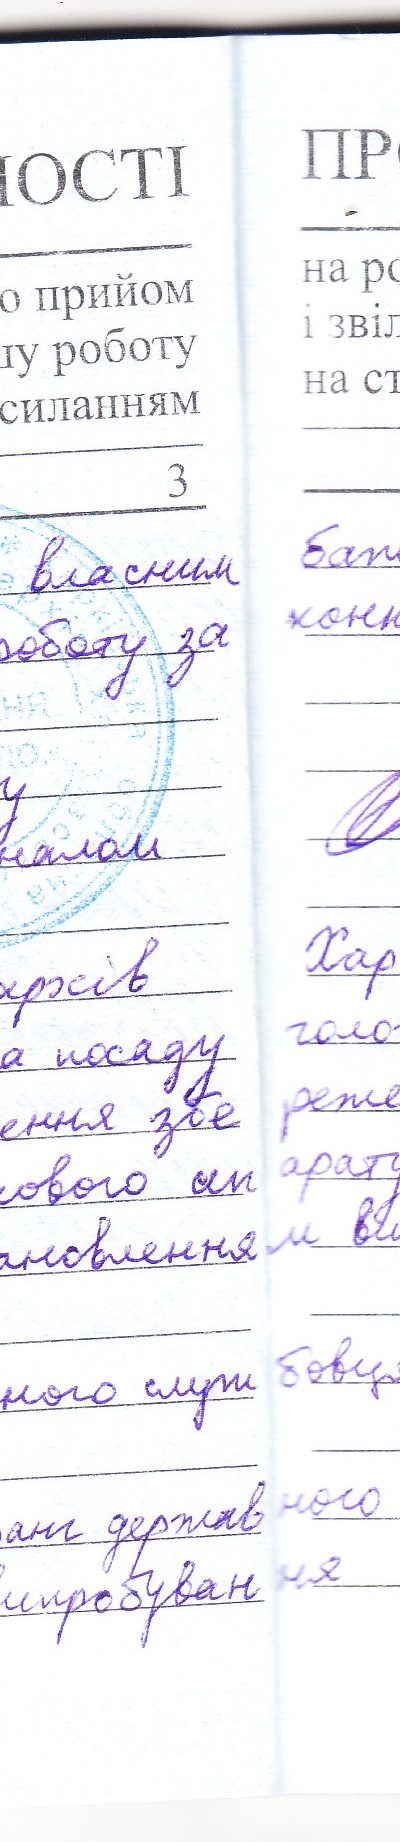 НОСТІ
о прийом
шу роботу
силанням
3
власним
роботу за
у
налом
арків
а посаду
ення збе
кового ап
ановлення
ного служ
ранг держав
випробуван
ПРО
на ро
і звіл
на ст
бать
конн
Хар
голов
реже
арату
м ви
бовця
ного
ня